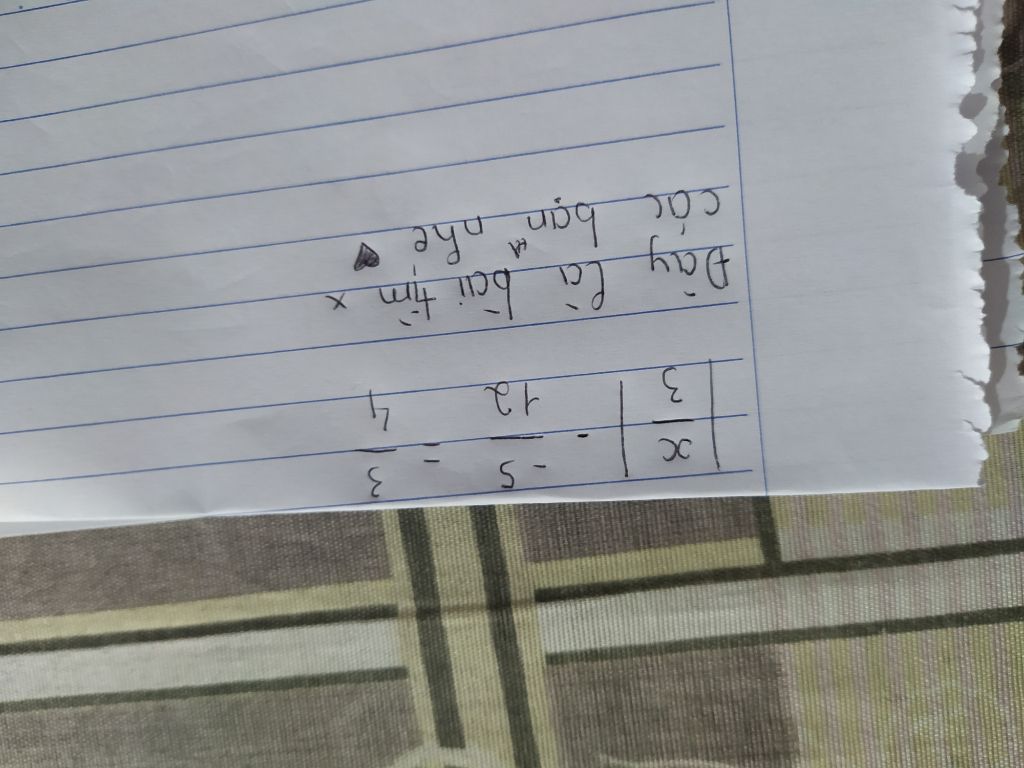 |x/3| - -5/12 = 3/4
Đây là bài tìm x
các bạn ạ nhé ♥